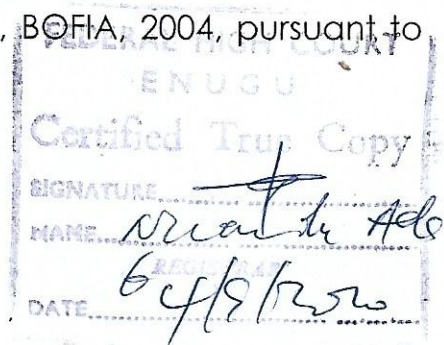 , BOFIA, 2004, pursuant to
FEDERAL HIGH COURT
ENUGU
Certified True Copy
SIGNATURE
NAME
REGISTRAR
DATE